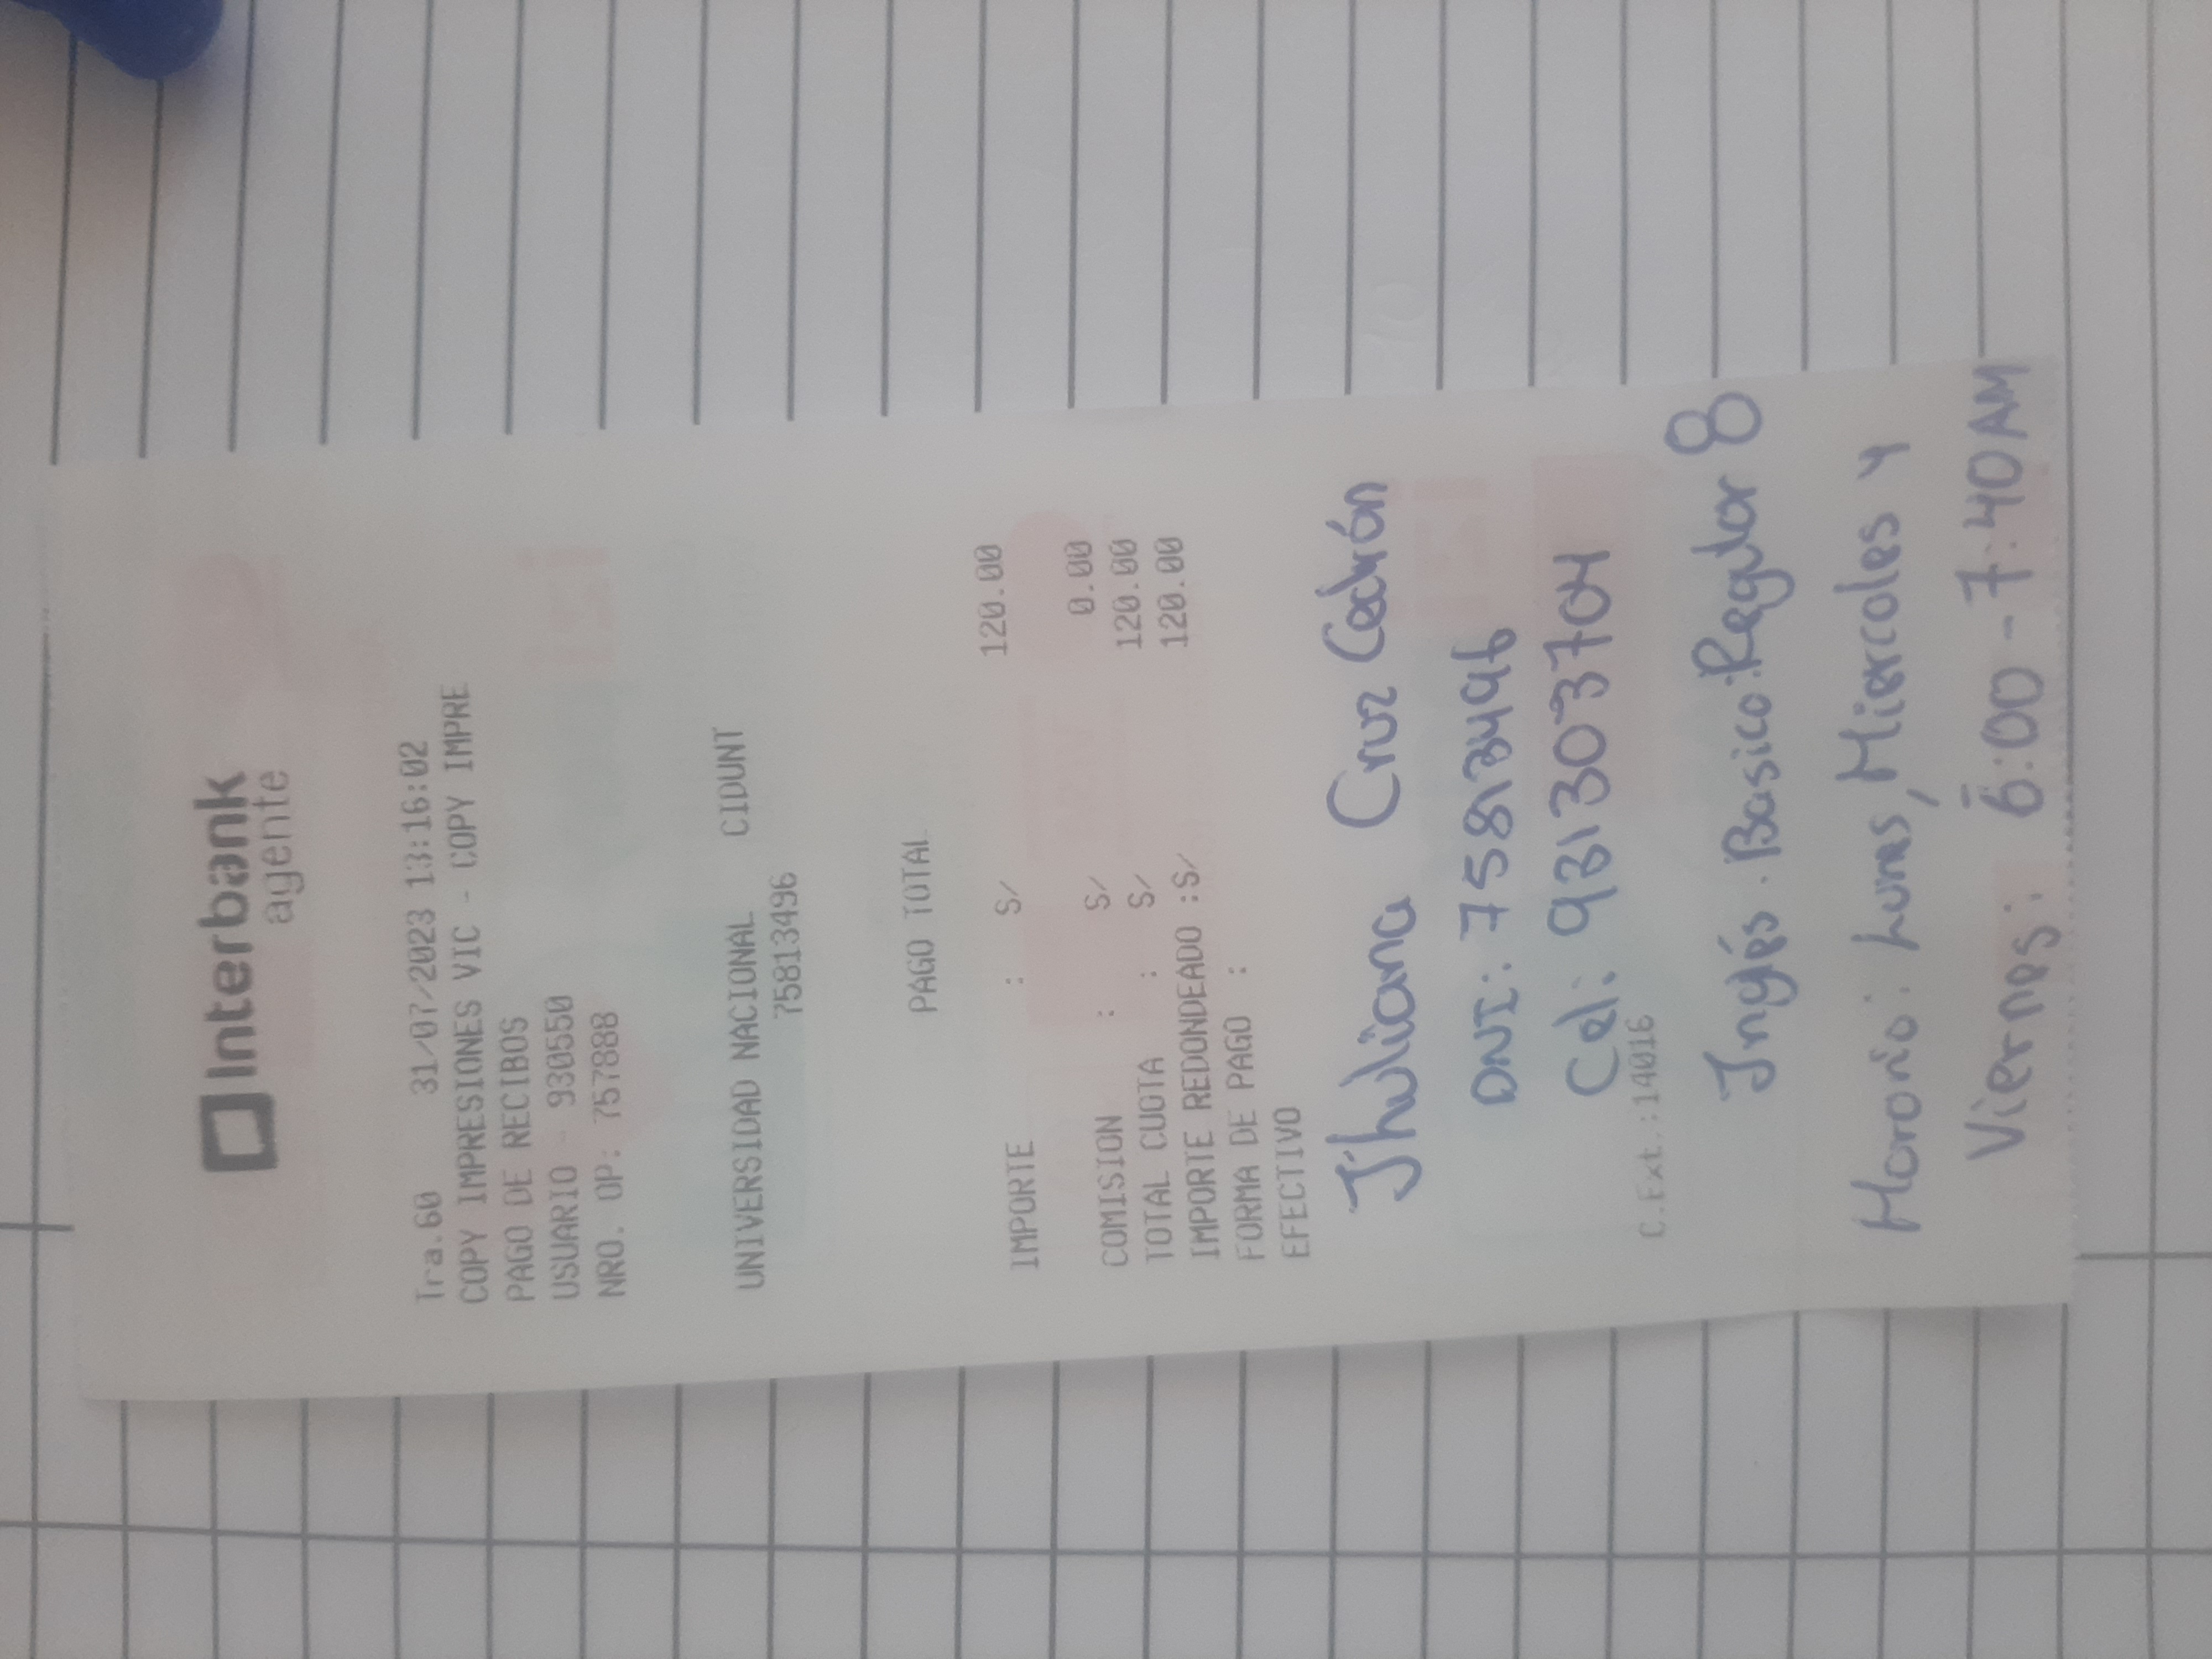 Interbank
agente
Tra.60 31/07/2023 13:16:02
COPY IMPRESIONES VIC - COPY IMPRE
PAGO DE RECIBOS
USUARIO - 930550
NRO. OP: 757888
UNIVERSIDAD NACIONAL CIDUNT
75813496
PAGO TOTAL
IMPORTE : S/ 120.00
COMISION : S/ 0.00
TOTAL CUOTA : S/ 120.00
IMPORTE REDONDEADO :S/ 120.00
FORMA DE PAGO :
EFECTIVO
Jhuliana Cruz Cedrón
DNI: 75813496
Cel: 931303704
C.Ext.:14016
Inglés. Basico: Regular 8
Horario: Lunes, Miercoles y
Viernes: 6:00 - 7:40AM